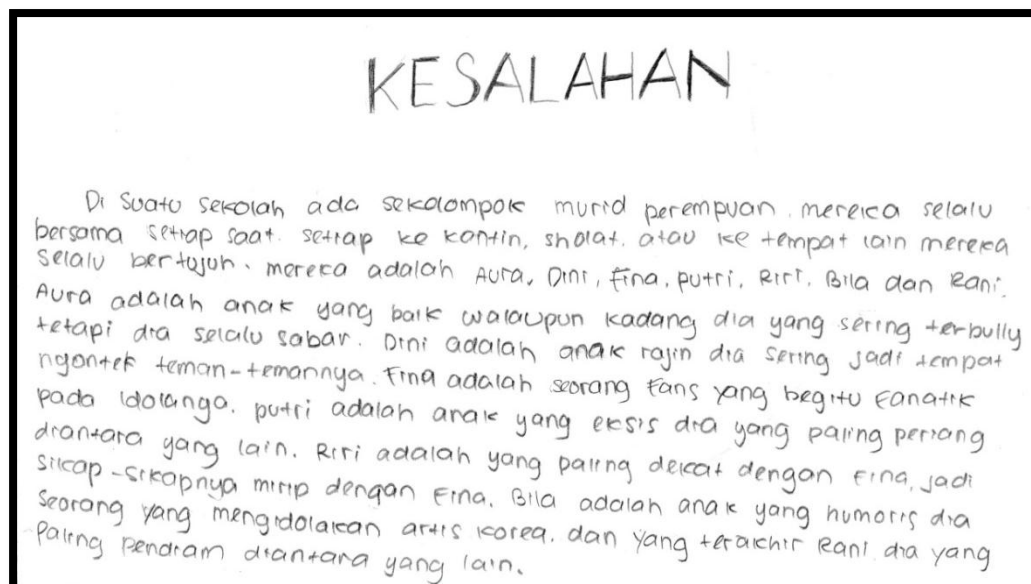 KESALAHAN
Di suatu sekolah ada sekolompok murid perempuan. mereka selalu
bersama setiap saat. setiap ke kantin, sholat. atau ke tempat lain mereka
selalu bertujuh. mereka adalah Aura, Dini, Fina, putri, Riri, Bila dan Rani.
Aura adalah anak yang baik walaupun kadang dia yang sering terbully
tetapi dia selalu sabar. Dini adalah anak rajin dia sering jadi tempat
ngontek teman-temannya. Fina adalah seorang Fans yang begitu Fanatik
pada idolanga. putri adalah anak yang eksis dia yang paling periang
diantara yang lain. Riri adalah yang paling dekat dengan Fina, jadi
sikap-sikapnya mirip dengan Fina. Bila adalah anak yang humoris dia
seorang yang mengidolakan artis korea. dan yang terakhir Rani dia yang
paling pendiam diantara yang lain.